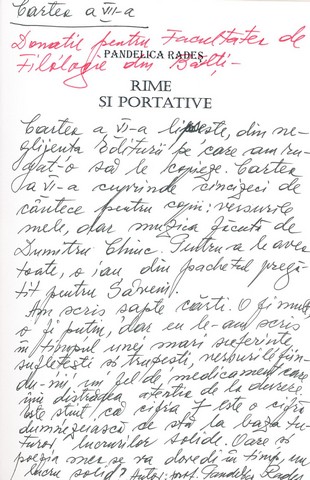 Cartea a VII-a
Donație pentru Facultatea de
PANDELICA RADEȘ
Filologie din Bălți -
RIME
SI PORTATIVE
Cartea a VI-a lipsește, din ne-
glijența Editurii pe care am ru-
gat-o să le copieze. Cartea
a VI-a cuprinde cincizeci de
cântece pentru copii: versurile
mele, dar muzica făcută de
Dumitru Chiuc. Pentru a le avea
toate, o iau din pachetul pregă-
tit pentru Săveni.
Am scris șapte cărți. O fi mult,
o fi puțin, dar eu le-am scris
în timpul unei mari suferințe
sufletești și trupești, versurile fiin-
du-mi, un fel de medicament care
îmi distrăgea atenția de la durere.
Este știut, că cifra 7 este o cifră
dumnezeiască ce stă la baza tu-
turor lucrurilor solide. Oare și
poezia mea se va dovedi în timp, un
lucru solid? Autor: prof. Pandelica Radeș